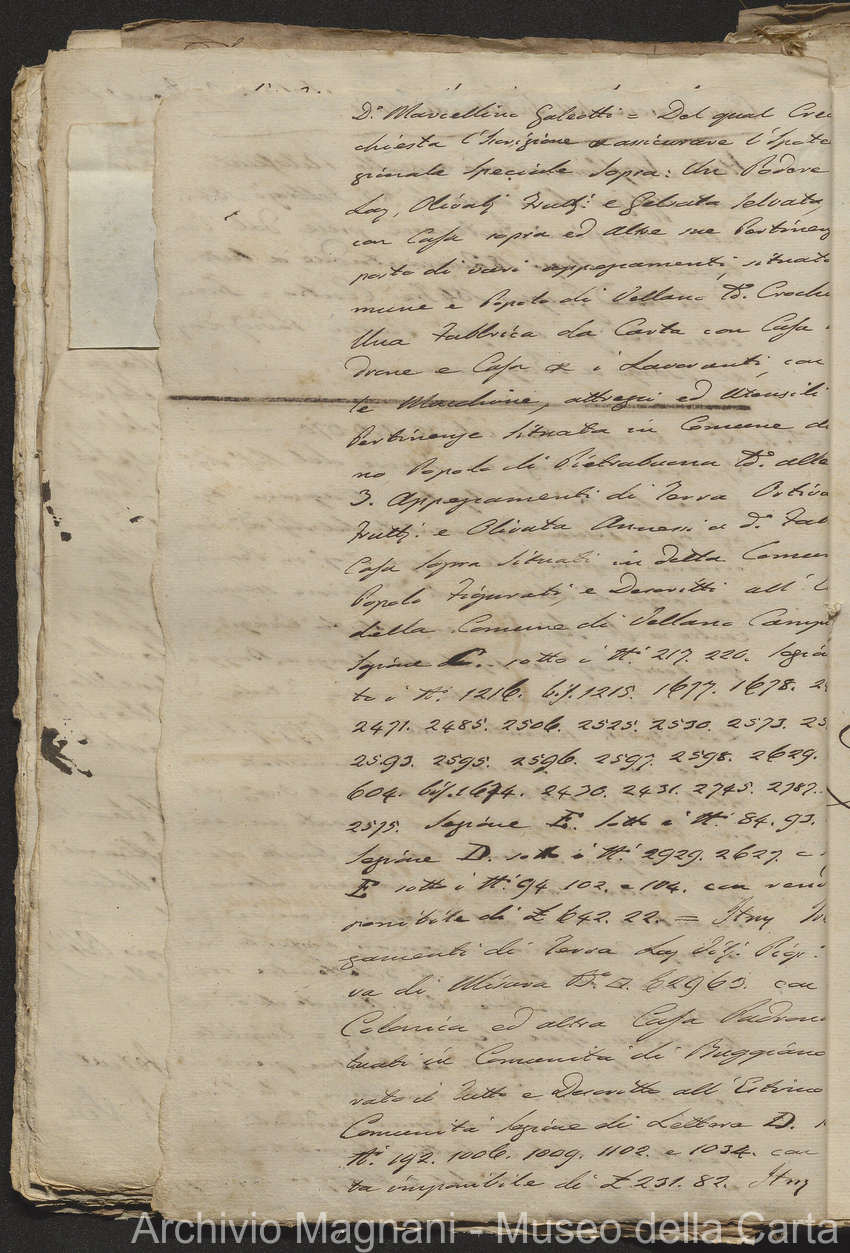 D.º Marcellino Galeotti = Del qual Cre
chiesta l'Iscrizione x assicurare l'Ipote
gionale speciale sopra: Un Podere
Lav, Olivat, Frutt: e Gelsata selvata
con Casa sopra ed altre sue Pertinenz
posto di vari appezzamenti, situato
mune e Popolo di Vellano
Una Fabbrica da Carta con Casa
drone e Casa x i Lavoranti, con
te Macchine, attrezzi ed Utensili
Pertinenze situata in Comune di
no Popolo di Pietrabuona alle
3. Appezzamenti di Terra Ortiva
Frutt: e Olivata Annessi a d.ª Fab
Casa sopra situati in detta Comun
Popolo Figurati, e Descritti all'
della Comune di Vellano Camp
sezione C. sotto i N.i 217. 220. sezio
to i N.i 1216. 1215. 1677. 1678. 2
2471. 2485. 2506. 2525. 2530. 2573. 25
2593. 2595. 2596. 2597. 2598. 2629.
604. 1674. 2430. 2431. 2745. 2787.
2575. sezione E. sotto i N.i 84. 93.
sezione D. sotto i N.i 2929. 2627. e
E sotto i N.i 94. 102. e 104. con rend
ponibile di £ 642. 22. = Item
zamenti di Terra Lav Vit:
va di Misura 62963. con
Colonica ed altra Casa Padron
tuati in Comunità di Buggiano
vato il Tutto e Descritto all'Estimo
Comunità sezione di Lettera D.
N.i 192. 1006. 1009. 1102. e 1034. con
ta imponibile di £ 231. 82. Item
Archivio Magnani - Museo della Carta